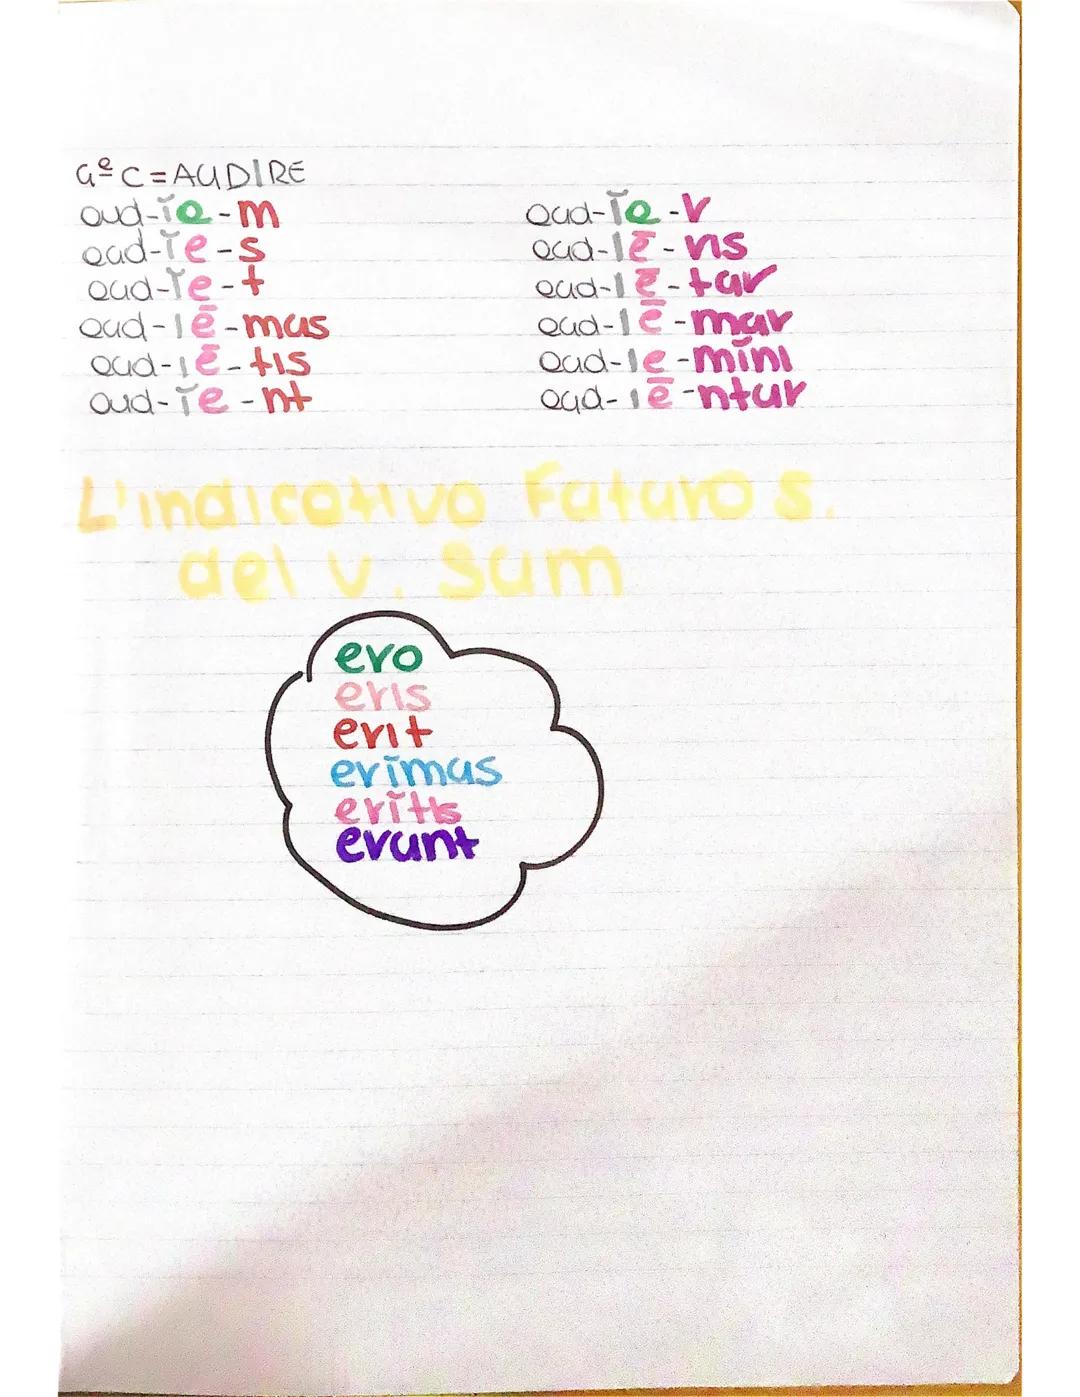 4ª C=AUDIRE
aud-ĭa-m
aud-ĭe-s
aud-ĭe-t
aud-iē-mus
aud-iē-tis
aud-ĭe-nt
aud-ĭa-r
aud-iē-ris
aud-iē-tur
aud-iē-mur
aud-ie-mĭni
aud-iē-ntur
L'indicativo Futuro s.
del v. Sum
ero
eris
erit
erĭmus
erĭtis
erunt